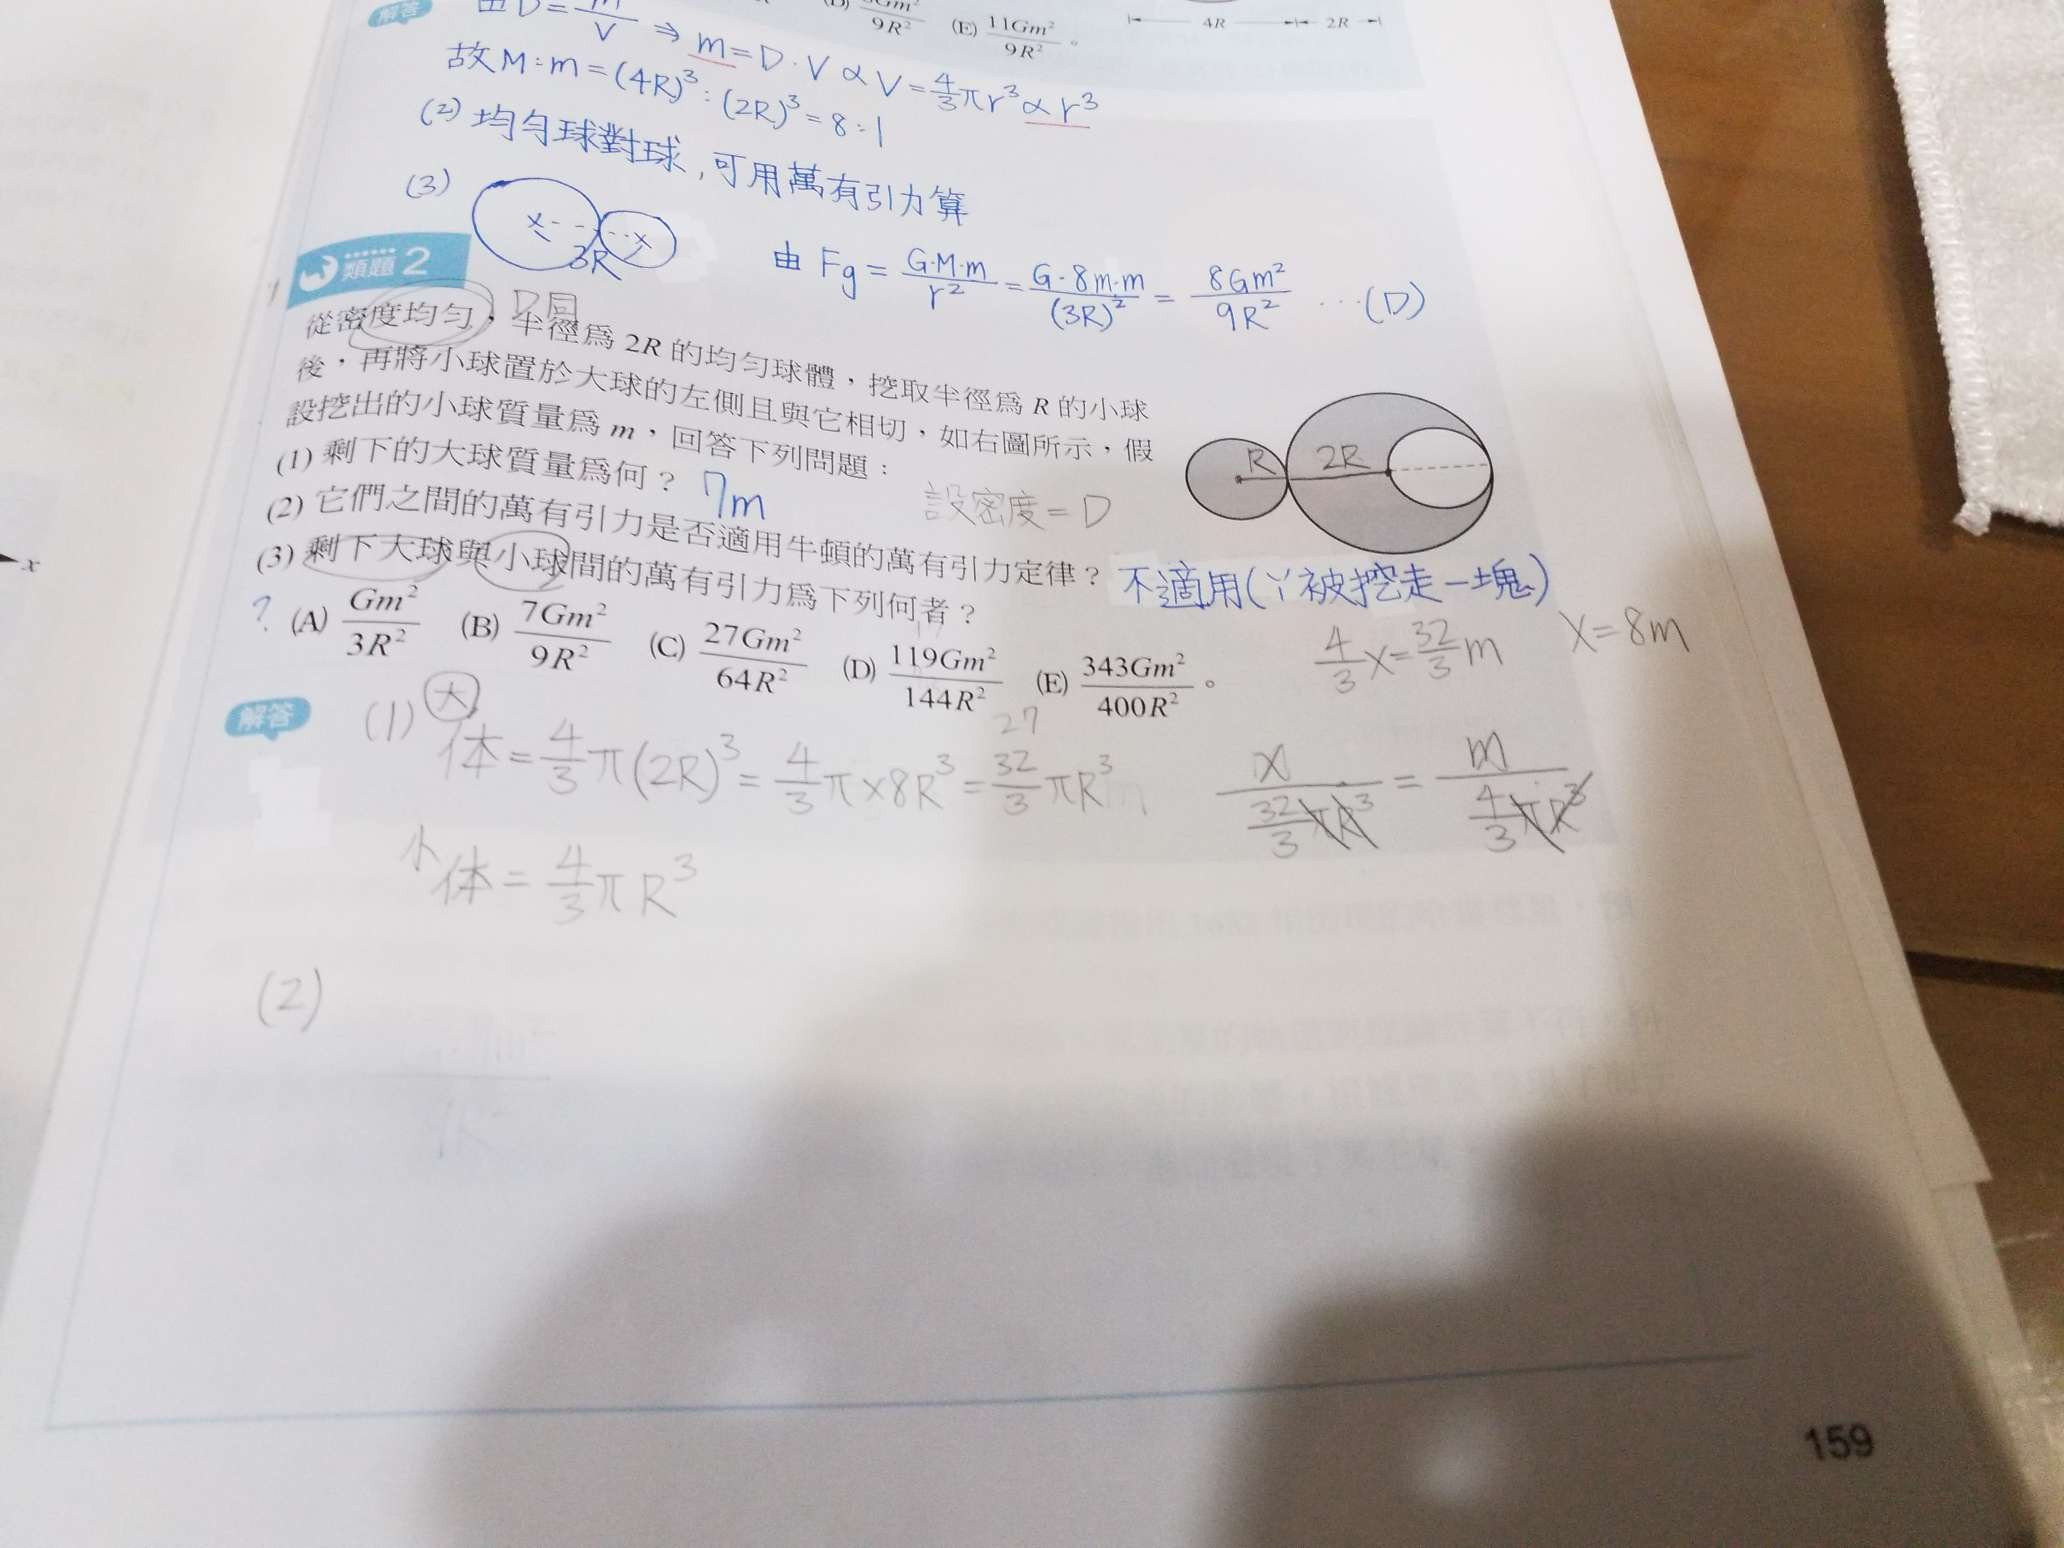 解答
由 D = m/V ⇒ m = D · V ∝ V = 4/3 πr³ ∝ r³
9R² (E) 11Gm²/9R²。
4R 2R
故 M : m = (4R)³ : (2R)³ = 8 : 1
(2) 均勻球對球,可用萬有引力算
(3) 3R
由 Fg = G·M·m/r² = G·8m·m/(3R)² = 8Gm²/9R² …(D)
類題 2
D同
從密度均勻,半徑為 2R 的均勻球體,挖取半徑為 R 的小球
後,再將小球置於大球的左側且與它相切,如右圖所示,假
設挖出的小球質量為 m,回答下列問題:
R 2R
(1) 剩下的大球質量為何? 7m
設密度 = D
(2) 它們之間的萬有引力是否適用牛頓的萬有引力定律? 不適用(ㄚ被挖走一塊)
(3) 剩下大球與小球間的萬有引力為下列何者?
? (A) Gm²/3R² (B) 7Gm²/9R² (C) 27Gm²/64R² (D) 119Gm²/144R² (E) 343Gm²/400R²。
4/3 x = 32/3 m x = 8m
解答
(1) 大体 = 4/3 π(2R)³ = 4/3 π×8R³ = 32/3 πR³
27
x / 32/3 πR³ = m / 4/3 πR³
小体 = 4/3 πR³
(2)
159
x